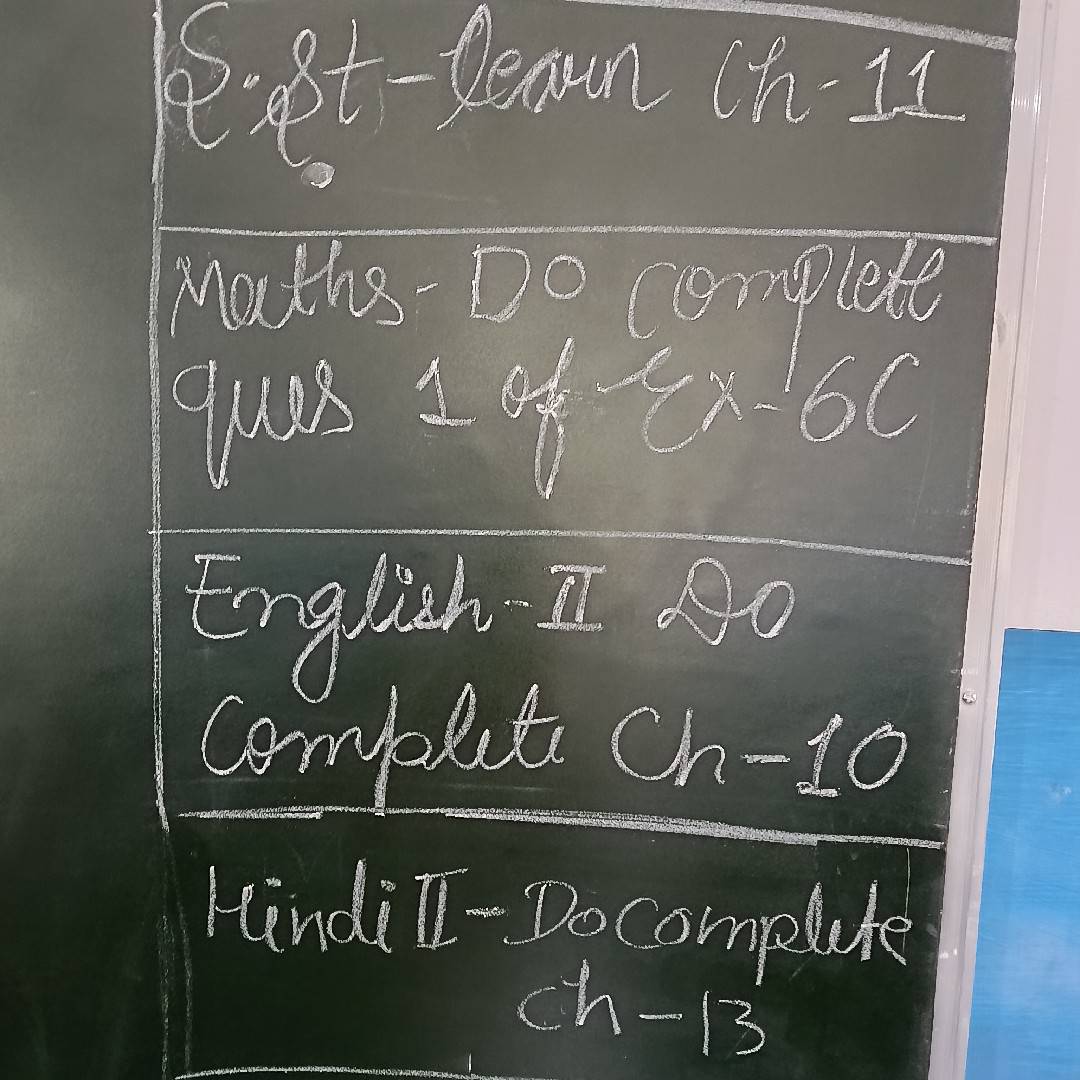 S.St - learn Ch-11
Maths - Do complete
ques 1 of Ex-6C
English-II Do
Complete Ch-10
Hindi II - Do complete
Ch-13